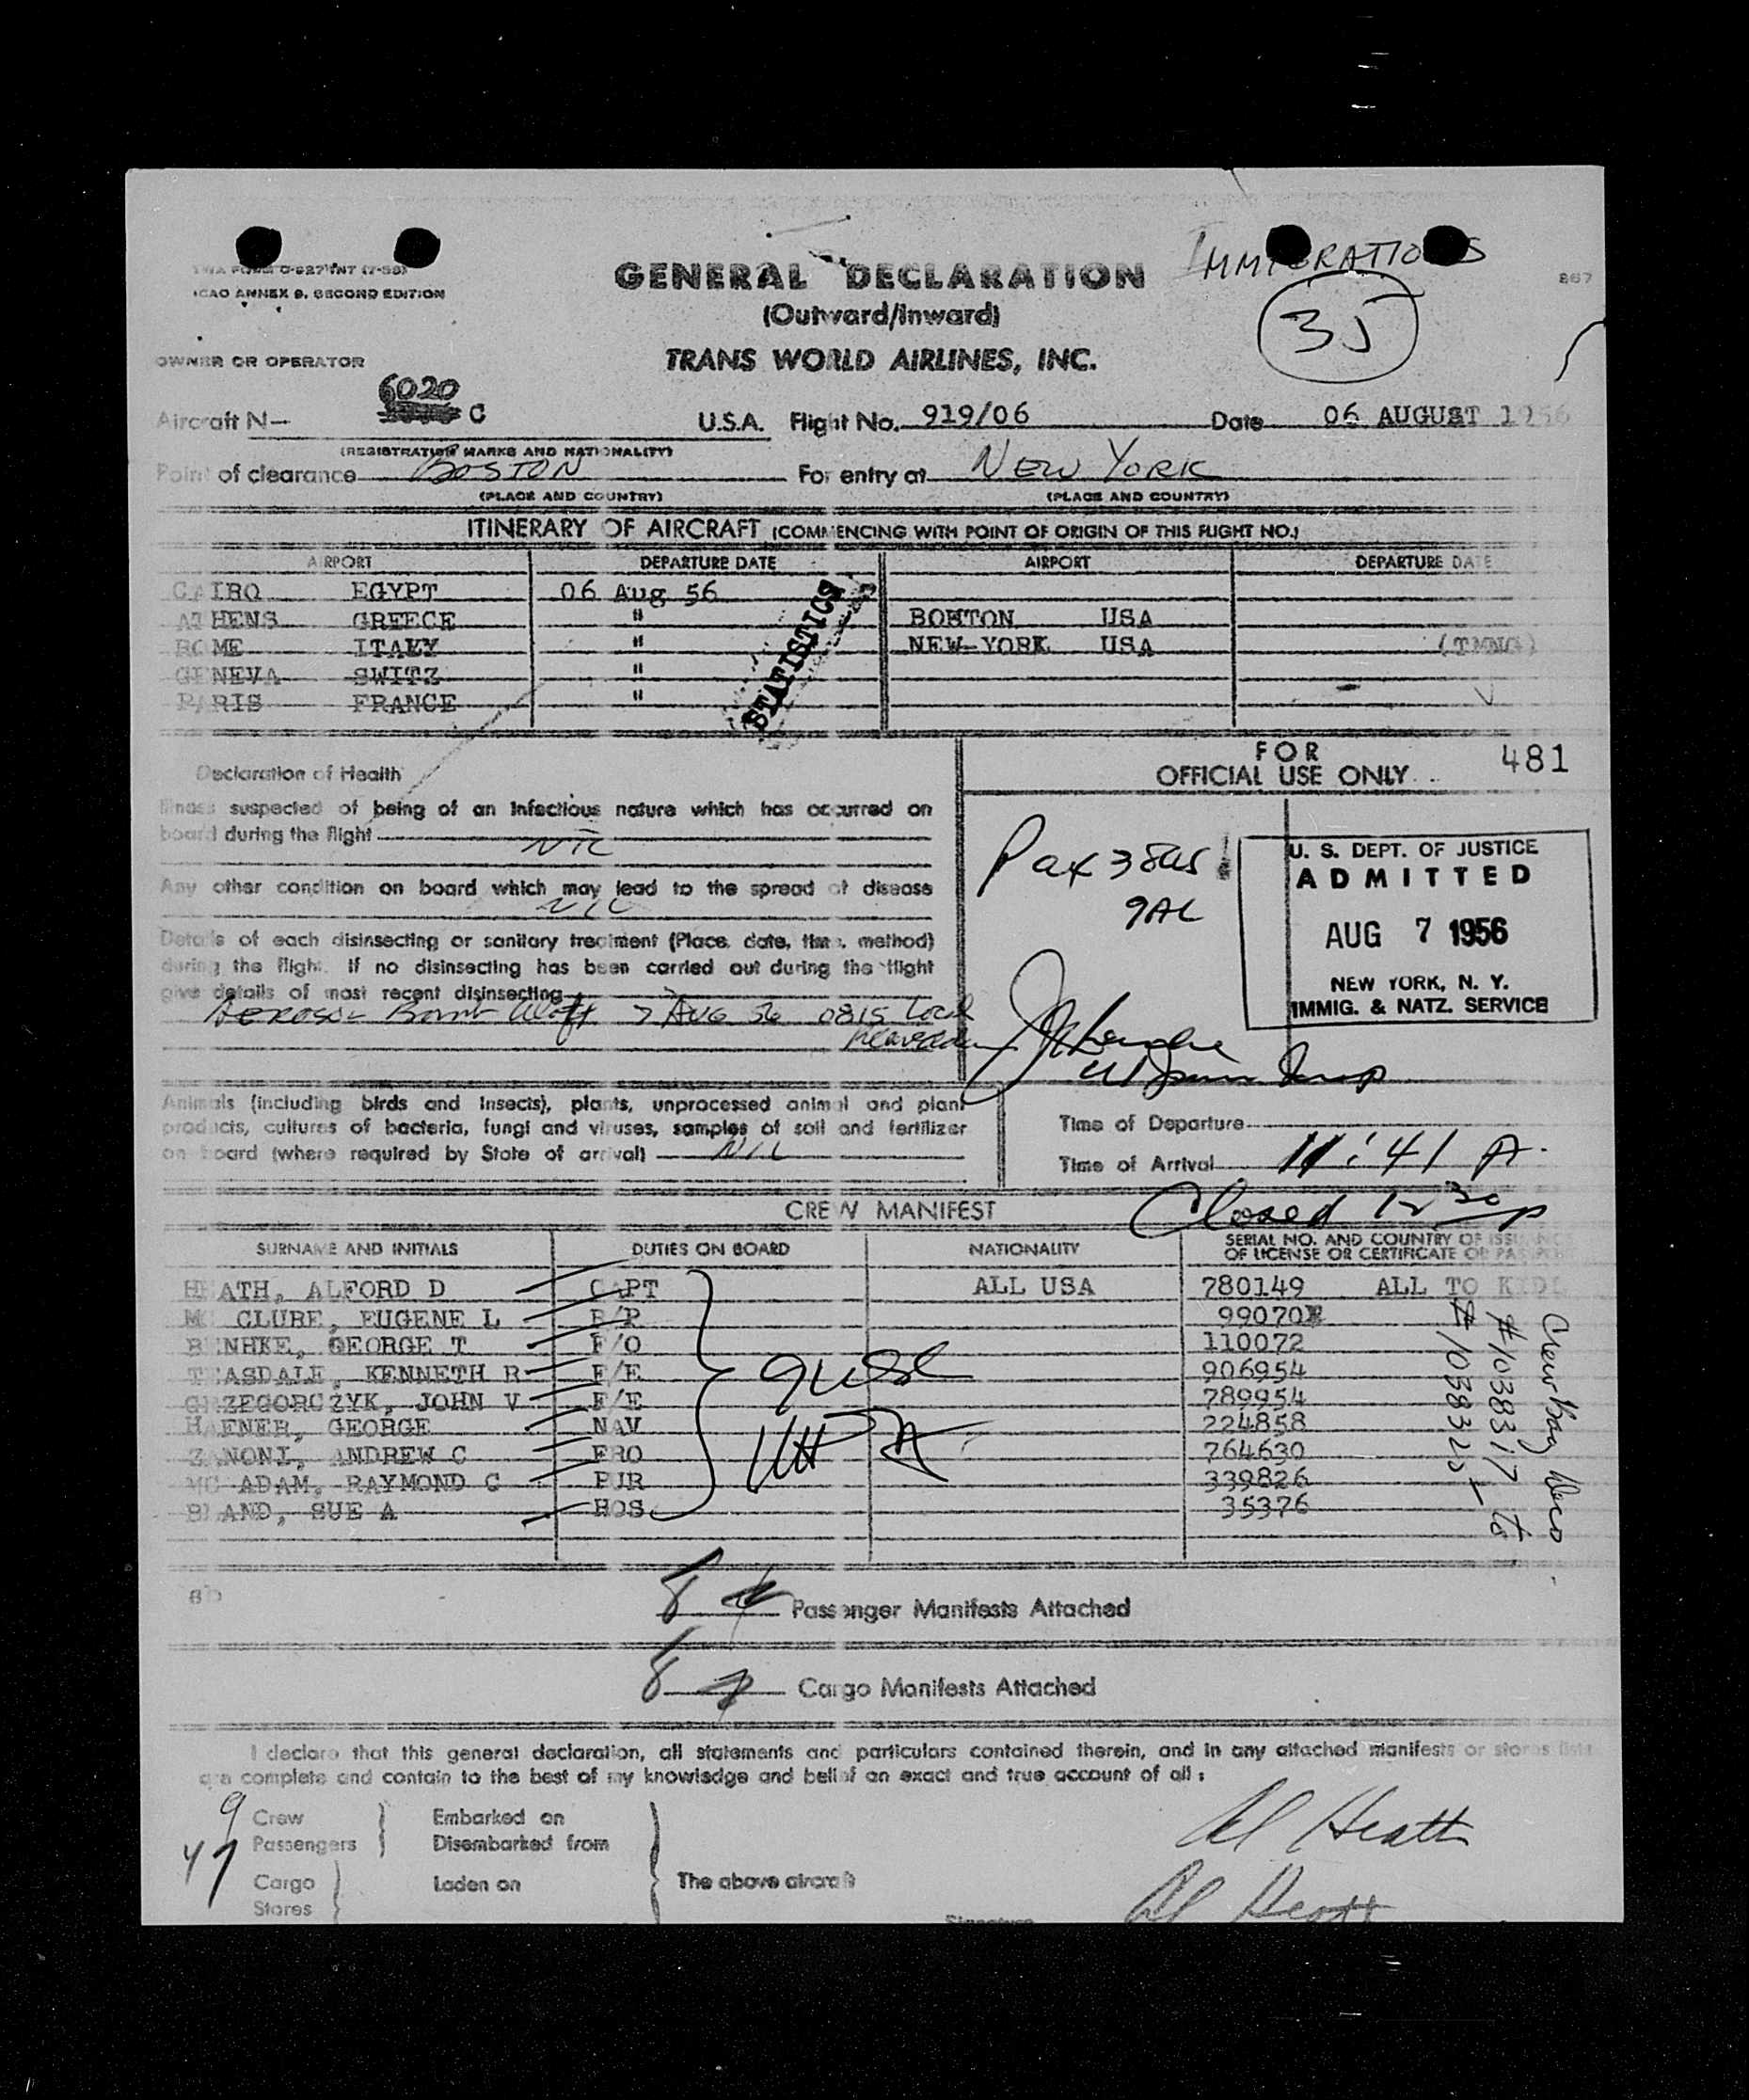 TWA FORM O-927 INT (7-55)
ICAO ANNEX 9, SECOND EDITION
GENERAL DECLARATION
IMMIGRATIONS
867
(Outward/Inward)
35
OWNER OR OPERATOR
TRANS WORLD AIRLINES, INC.
6020
Aircraft N— C U.S.A. Flight No. 919/06 Date 06 AUGUST 1956
(REGISTRATION MARKS AND NATIONALITY)
Point of clearance BOSTON For entry at NEW YORK
(PLACE AND COUNTRY) (PLACE AND COUNTRY)
ITINERARY OF AIRCRAFT (COMMENCING WITH POINT OF ORIGIN OF THIS FLIGHT NO.)
AIRPORT DEPARTURE DATE AIRPORT DEPARTURE DATE
CAIRO EGYPT 06 Aug 56
ATHENS GREECE " BOHTON USA
ROME ITALY " NEW YORK USA (TMNG)
GENEVA SWITZ "
PARIS FRANCE "
STATISTICS
FOR
OFFICIAL USE ONLY
481
Declaration of Health
Illness suspected of being of an infectious nature which has occurred on
board during the flight NIL
Any other condition on board which may lead to the spread of disease
NIL
Details of each disinsecting or sanitary treatment (Place, date, time, method)
during the flight. If no disinsecting has been carried out during the flight
give details of most recent disinsecting
Aerosol Bomb Aloft 7 AUG 56 0815 Local
Pax 38us
9AL
U. S. DEPT. OF JUSTICE
ADMITTED
AUG 7 1956
NEW YORK, N. Y.
IMMIG. & NATZ. SERVICE
Animals (including birds and insects), plants, unprocessed animal and plant
products, cultures of bacteria, fungi and viruses, samples of soil and fertilizer
on board (where required by State of arrival) NIL
Time of Departure
Time of Arrival 11:41 A.
Closed 12 30 p
CREW MANIFEST
SURNAME AND INITIALS DUTIES ON BOARD NATIONALITY SERIAL NO. AND COUNTRY OF ISSUANCE
OF LICENSE OR CERTIFICATE OR PASSPORT
HEATH, ALFORD D CAPT ALL USA 780149 ALL TO
MC CLURE, EUGENE L R/P 99070
BENHKE, GEORGE T F/O 110072
TEASDALE, KENNETH R F/E 906954
GRZEGORCZYK, JOHN V F/E 789954
HAFNER, GEORGE NAV 224858
ZANONI, ANDREW C FRO 764630
MC ADAM, RAYMOND C PUR 339826
BLAND, SUE A HOS 35376
9USC
Crew Bag Decs
#1038317 to
#1038325
8 Passenger Manifests Attached
8 Cargo Manifests Attached
I declare that this general declaration, all statements and particulars contained therein, and in any attached manifests or stores lists
are complete and contain to the best of my knowledge and belief an exact and true account of all:
9 Crew Embarked on
47 Passengers Disembarked from
Cargo Laden on The above aircraft
Stores
Al Heath
Al Heath
Signature